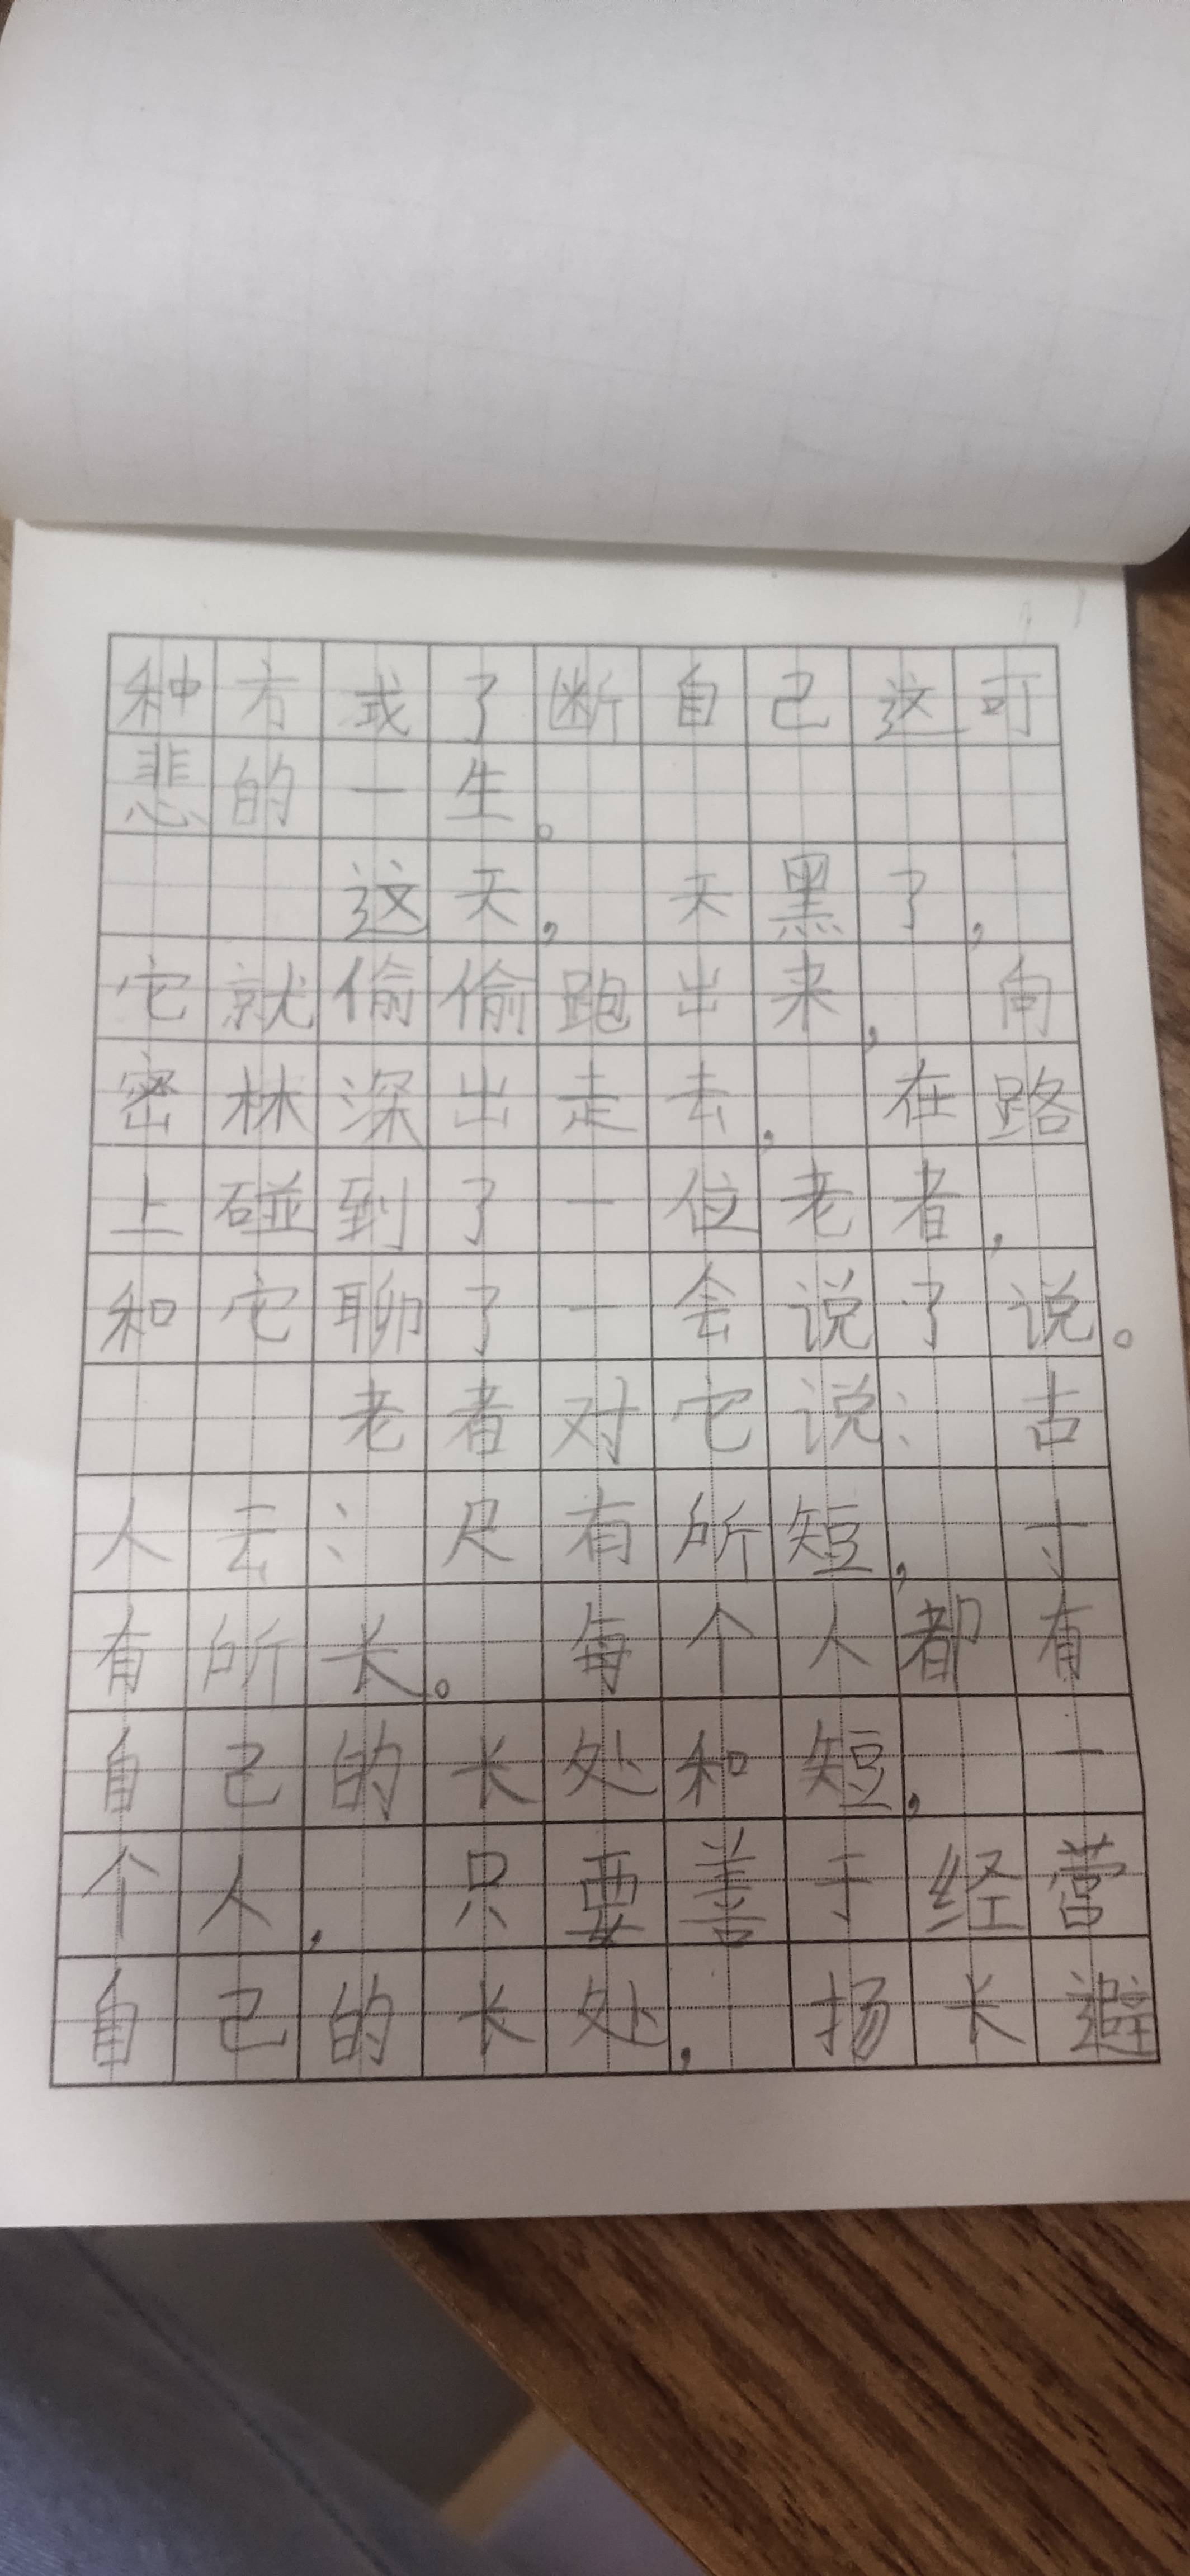 种方或了断自己这可
悲的一生。
这天，天黑了，
它就偷偷跑出来，向
密林深出走去，在路
上碰到了一位老者，
和它聊了一会说了说。
老者对它说：古
人云：尺有所短，寸
有所长。每个人都有
自己的长处和短，一
个人，只要善于经营
自己的长处，扬长避